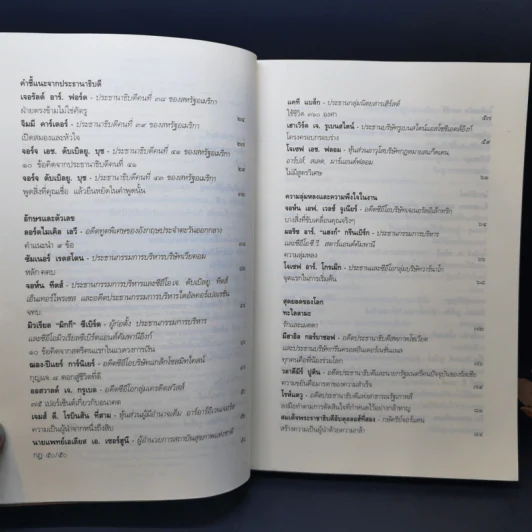 คำชี้แนะจากประธานาธิบดี
เจอรัลด์ อาร์. ฟอร์ด - ประธานาธิบดีคนที่ ๓๘ ของสหรัฐอเมริกา
ฝ่ายตรงข้ามไม่ใช่ศัตรู
จิมมี่ คาร์เตอร์ - ประธานาธิบดีคนที่ ๓๙ ของสหรัฐอเมริกา
เปิดสมองและหัวใจ
จอร์จ เอช. ดับเบิลยู. บุช - ประธานาธิบดีคนที่ ๔๑ ของสหรัฐอเมริกา
๑๐ ข้อคิดจากประธานาธิบดีคนที่ ๔๑
จอร์จ ดับเบิลยู. บุช - ประธานาธิบดีคนที่ ๔๓ ของสหรัฐอเมริกา
พูดสิ่งที่คุณเชื่อ แล้วยืนหยัดในคำพูดนั้น
อักษรและตัวเลข
ลอร์ดไมเคิล เลวี - อดีตทูตพิเศษของอังกฤษประจำตะวันออกกลาง
คำแนะนำ ๙ ข้อ
ซัมเนอร์ เรดสโตน - ประธานกรรมการบริหารบริษัทเวียคอม
หลัก คคบ
จอห์น ทิสส์ - ประธานกรรมการบริหารและซีอีโอเจ. ดับเบิลยู. ทิสส์
เอ็นเทอร์ไพรเซส และอดีตประธานกรรมการบริหารโตอัลคอร์เปอเรชั่น
จทบ
มิวเรียล "มิกกี" ซีเบิร์ต - ผู้ก่อตั้ง ประธานกรรมการบริหาร
และซีอีโอมิวเรียลซีเบิร์ตแอนด์คัมพานีอิงก์
๑๐ ข้อคิดจากสตรีคนแรกในแวดวงการเงิน
ฌอง-ปิแอร์ การ์นิเยร์ - อดีตซีอีโอบริษัทแกล็กโซสมิทไคลน์
กุญแจ ๘ ดอกสู่ชีวิตที่ดี
ออสวาลด์ เจ. กรูเบล - อดีตซีอีโอกลุ่มเครดิตสวิสส์
๗๕ เปอร์เซ็นต์เกี่ยวกับอนาคต
เจมส์ ดี. โรบินสัน ที่สาม - หุ้นส่วนผู้มีอำนาจเต็ม อาร์อาร์อีเวนเจอร์ส
ความเป็นผู้นำจากหนึ่งถึงสิบ
นายแพทย์เอเลียส เอ. เซอร์ฮูนี - ผู้อำนวยการสถาบันสุขภาพแห่งชาติ
กฎ ๕๐/๕๐
แคที แบล็ก - ประธานกลุ่มนิตยสารเฮิร์สต์
ใช้ชีวิต ๓๖๐ องศา
๕๗
เฮาเวิร์ด เจ. รูเบนสไตน์ - ประธานบริษัทรูเบนสไตน์แอสโซซิเอตส์อิงก์
โครงครอบกรอบร่าง
โจเซฟ เอช. ฟลอม - หุ้นส่วนอาวุโสบริษัทกฎหมายสแกดเดน,
อาร์ปส์, สเลต, มาร์แอนด์ฟลอม
ไม่มีสูตรวิเศษ
ความลุ่มหลงและความพึงใจในงาน
บางสิ่งที่ขับเคลื่อนคุณจริงๆ
มอริซ อาร์. "แฮงก์" กรีนเบิร์ก - ประธานกรรมการบริหาร
และซีอีโอ ซี.วี. สตาร์แอนด์คัมพานี
ความลุ่มหลง
จุดแรกในการเริ่มต้น
สุดยอดของโลก
ทะไลลามะ
รักและเมตตา
มิฮาอิล กอร์บาชอฟ - อดีตประธานาธิบดีสหภาพโซเวียต
ทุกคนคือพี่น้องร่วมโลก
ความขยันคือมารดาของความสำเร็จ
ลงมือทำตามการตัดสินใจที่กำหนดไว้อย่างกล้าหาญ
สร้างความเป็นผู้นำด้วยความกล้า